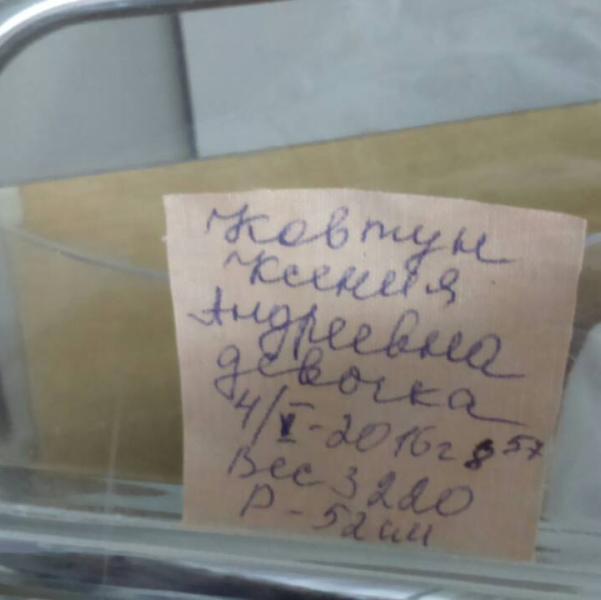 Ковтун
Ксения
Андреевна
девочка
4/V-2016г 8 57
Вес 3220
Р-52см